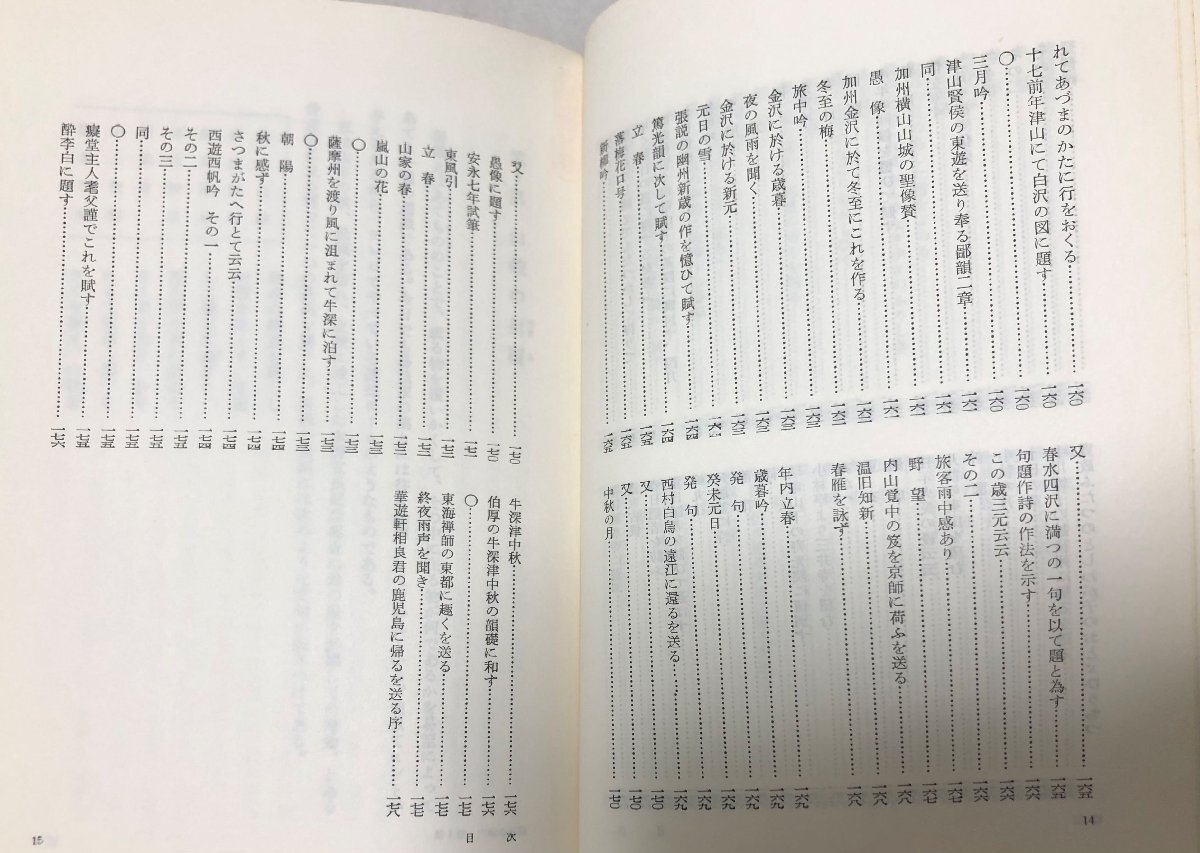 れてあづまのかたに行をおくる……一六〇
十七前年津山にて白沢の図に題す……一六〇
〇……一六〇
三月吟……一六〇
津山賢侯の東遊を送り奉る鄙韻二章……一六一
同……一六一
加州横山山城の聖像賛……一六一
愚像……一六一
加州金沢に於て冬至にこれを作る……一六二
冬至の梅……一六二
旅中吟……一六二
金沢に於ける歳暮……一六三
夜の風雨を聞く……一六三
金沢に於ける新元……一六三
元日の雪……一六四
張説の幽州新歳の作を憶ひて賦す……一六四
篤光韻に次して賦す……一六四
立春……一六五
落梅花口号……一六五
新柳吟……一六五
又……一六五
春水四沢に満つの一句を以て題と為す……一六五
句題作詩の作法を示す……一六六
この歳三元云云……一六六
その二……一六七
旅客雨中感あり……一六七
野望……一六八
内山覚中の笈を京師に荷ふを送る……一六八
温旧知新……一六八
春雁を詠ず……一六八
年内立春……一六九
歳暮吟……一六九
癸未元日……一六九
発句……一六九
西村白烏の遠江に還るを送る……一七〇
又……一七〇
中秋の月……一七〇
14
又……一七〇
愚像に題す……一七〇
安永七年試筆……一七一
東風引……一七二
立春……一七二
山家の春……一七三
嵐山の花……一七三
〇……一七三
薩摩州を渡り風に沮まれて牛深に泊す……一七三
〇……一七三
朝陽……一七四
秋に感ず……一七四
さつまがたへ行とて云云……一七四
西遊西帆吟 その一……一七四
その二……一七五
その三……一七五
同……一七五
〇……一七五
癡堂主人耄父謹でこれを賦す……一七五
酔李白に題す……一七六
牛深津中秋……一七六
伯厚の牛深津中秋の韻礎に和す……一七六
〇……一七七
東海禅師の東都に趣くを送る……一七七
終夜雨声を聞き……一七七
華遊軒相良君の鹿児島に帰るを送る序……一七八
目次
15